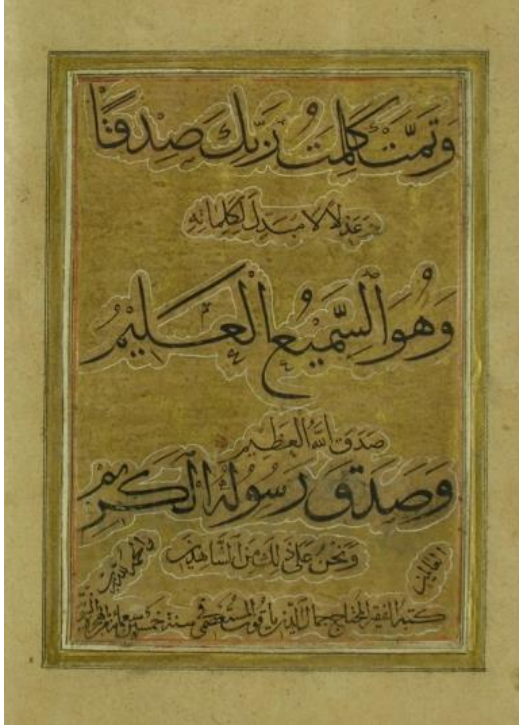 وَتَمَّتْ كَلِمَتُ رَبِّكَ صِدْقًا
وَعَدْلًا لَا مُبَدِّلَ لِكَلِمَاتِهِ
وَهُوَ السَّمِيعُ الْعَلِيمُ
صَدَقَ اللَّهُ الْعَظِيمُ
وَصَدَقَ رَسُولُهُ الْكَرِيمُ
وَنَحْنُ عَلَى ذَلِكَ مِنَ الشَّاهِدِينَ
والحمد لله رب
العالمين
كتبه الفقير المحتاج جمال الدين ياقوت المستعصمي في سنة خمس